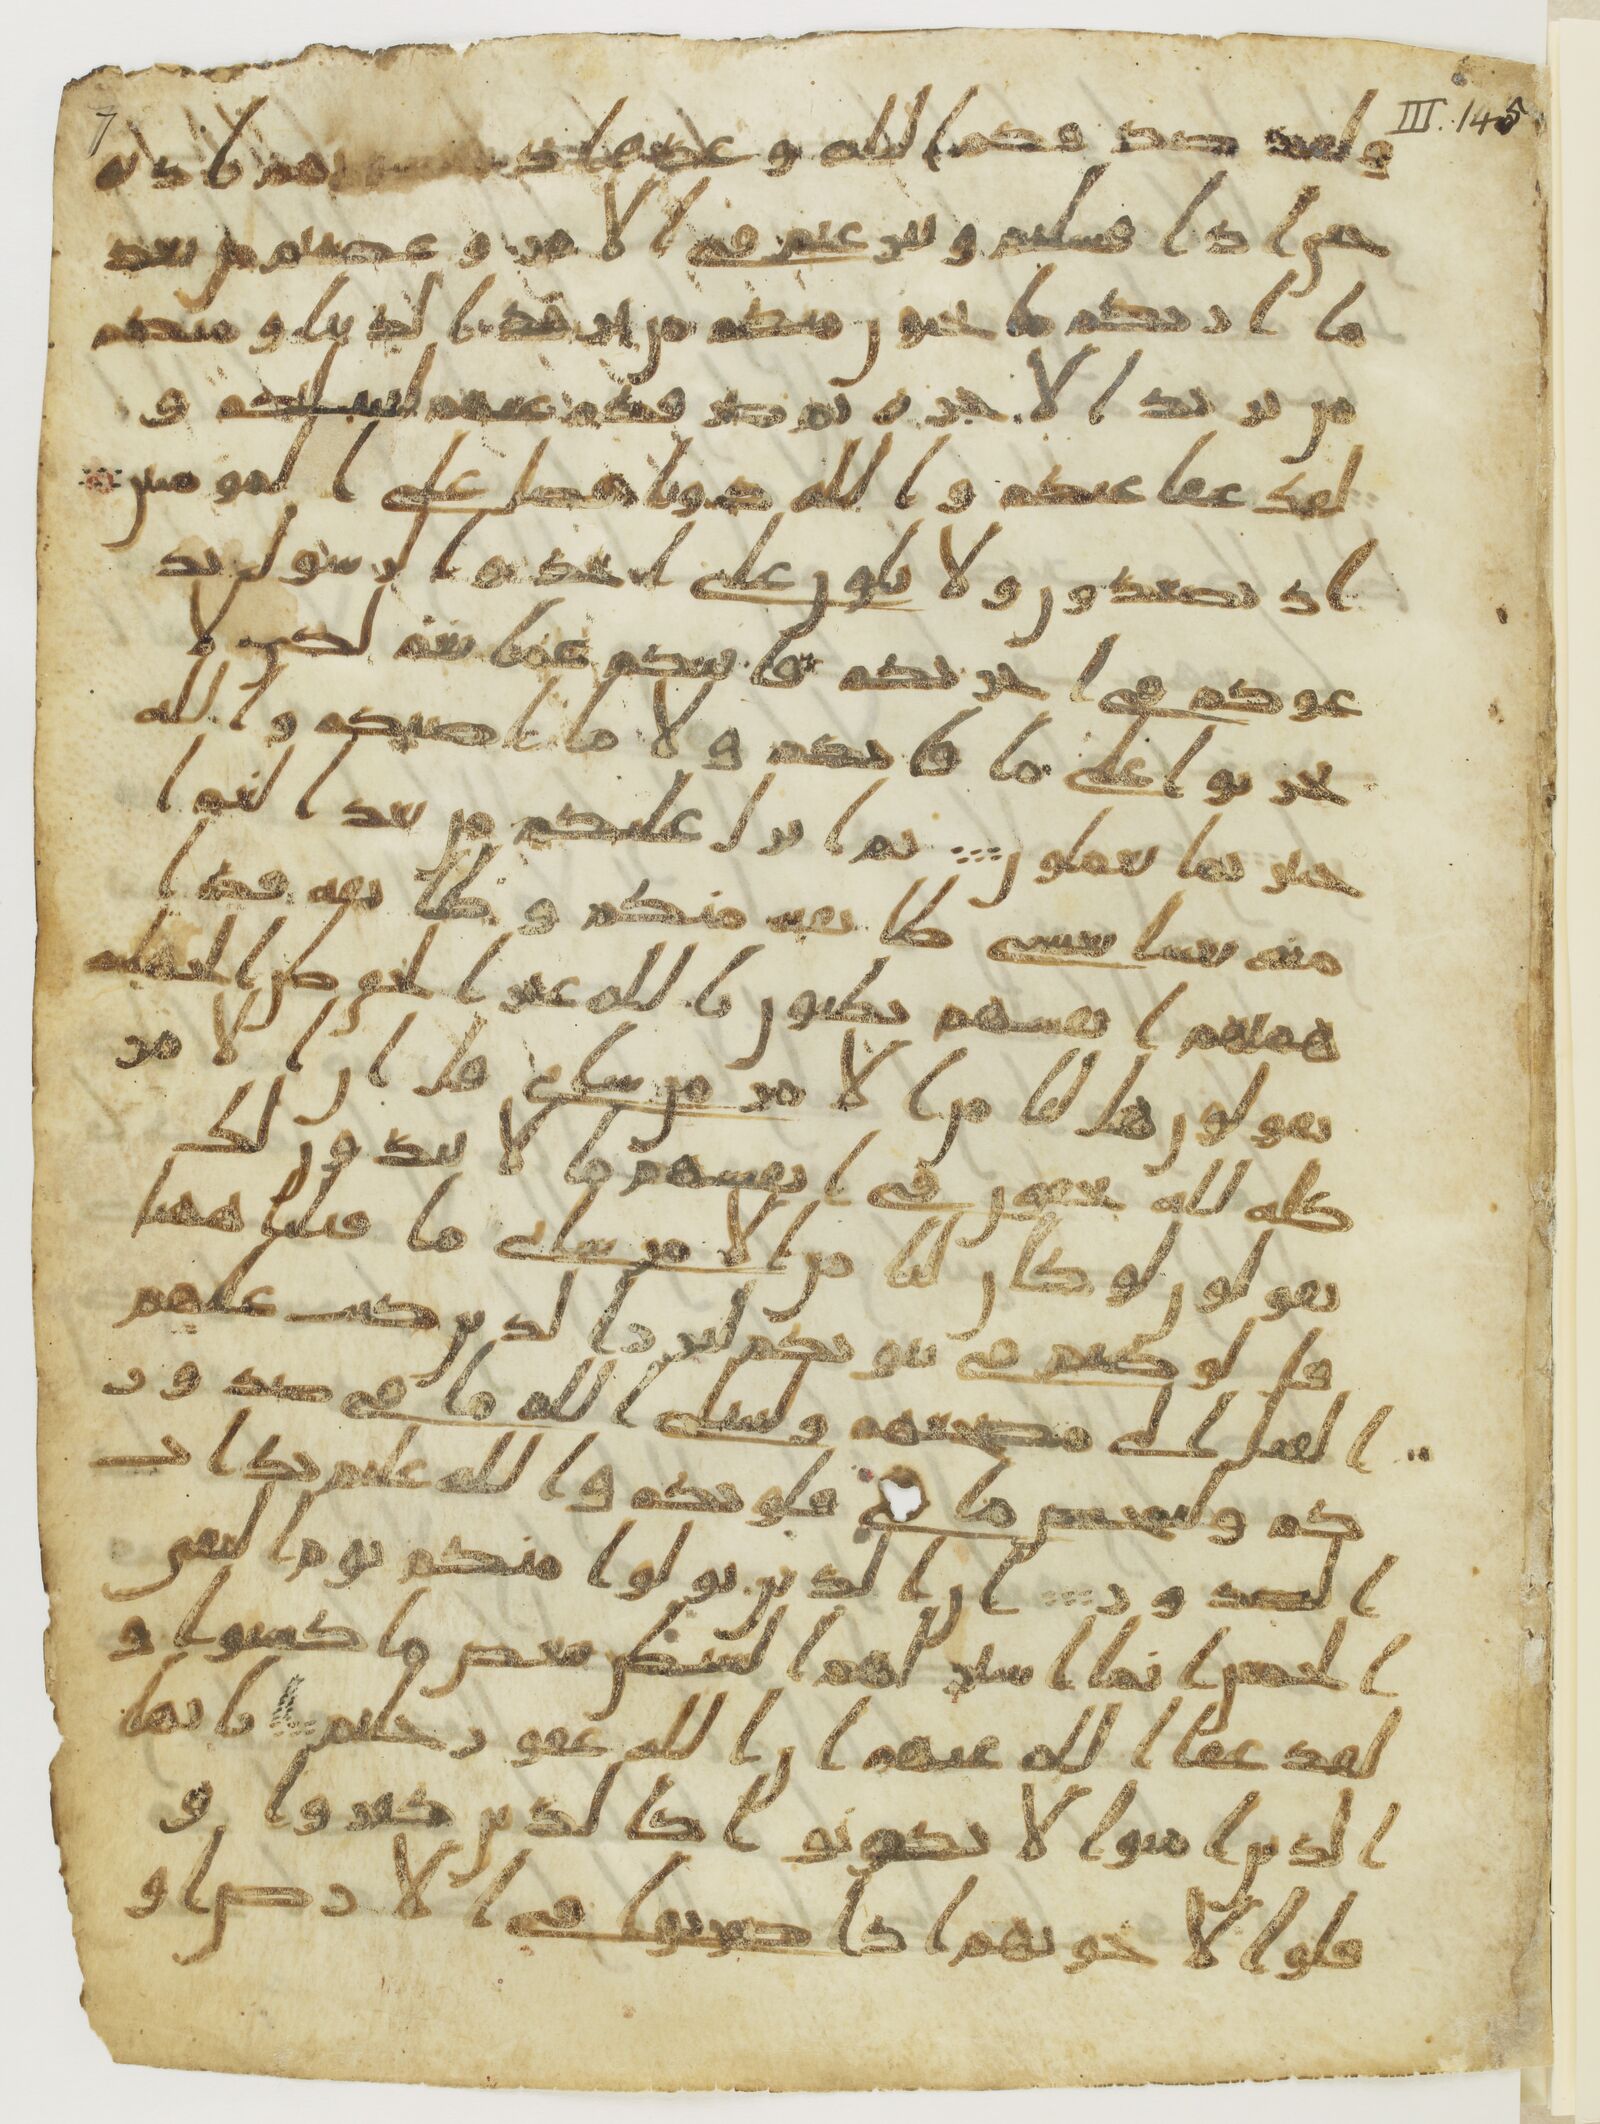 7
III. 145
ولقد صدقكم الله وعده اذ تحسونهم باذنه
حتى اذا فشلتم وتنزعتم في الامر وعصيتم من بعد
ما اريكم ما تحبون منكم من يريد الدنيا ومنكم
من يريد الاخرة ثم صرفكم عنهم ليبتليكم و
لقد عفا عنكم والله ذوا فضل على المومنين
اذ تصعدون ولا تلون على احد والرسول يد
عوكم في اخريكم فاثبكم غما بغم لكيلا
تحزنوا على ما فاتكم ولا ما اصبكم والله
خبير بما تعملون ثم انزل عليكم من بعد الغم ا
منة نعاسا يغشى طيفة منكم وطيفة قد ا
همتهم انفسهم يظنون بالله غير الحق ظن الجهلية
يقولون هل لنا من الامر من شاي قل ان الامر
كله لله يخفون في انفسهم ما لا يبدون لك
يقولون لو كان لنا من الامر شاي ما قتلنا ههنا
قل لو كنتم في بيوتكم لبرز الذين كتب عليهم
القتل الى مضجعهم وليبتلي الله ما في صدور
كم وليمحص ما في قلوبكم والله عليم بذات
الصدور ان الذين تولوا منكم يوم التقى
الجمعن انما استزلهم الشيطن ببعض ما كسبوا و
لقد عفا الله عنهم ان الله غفور حليم يايها
الذين امنوا لا تكونوا كالذين كفروا و
قلوا لاخونهم اذا ضربوا في الارض او